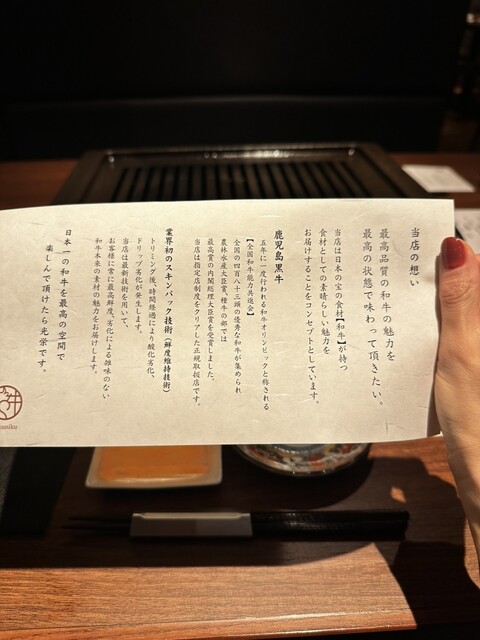 当店の想い
最高品質の和牛の魅力を
最高の状態で味わって頂きたい。
当店は日本の宝の食材【和牛】が持つ
食材としての素晴らしい魅力を
お届けすることをコンセプトとしています。
鹿児島黒牛
五年に一度行われる和牛オリンピックと称される
【全国和牛能力共進会】
全国の四百八十三頭の優秀な和牛が集められ
農林水産大臣賞、種牛の部では
最高賞の内閣総理大臣賞を受賞しました。
当店は指定店制度をクリアした正規取扱店です。
業界初のスキンパック技術（鮮度維持技術）
トリミング後、時間経過により酸化劣化、
ドリップ劣化が発生します。
当店は最新技術を用いて、
お客様に常に最高鮮度、劣化による雑味のない
和牛本来の素材の魅力をお届けします。
日本一の和牛を最高の空間で
楽しんで頂けたら光栄です。